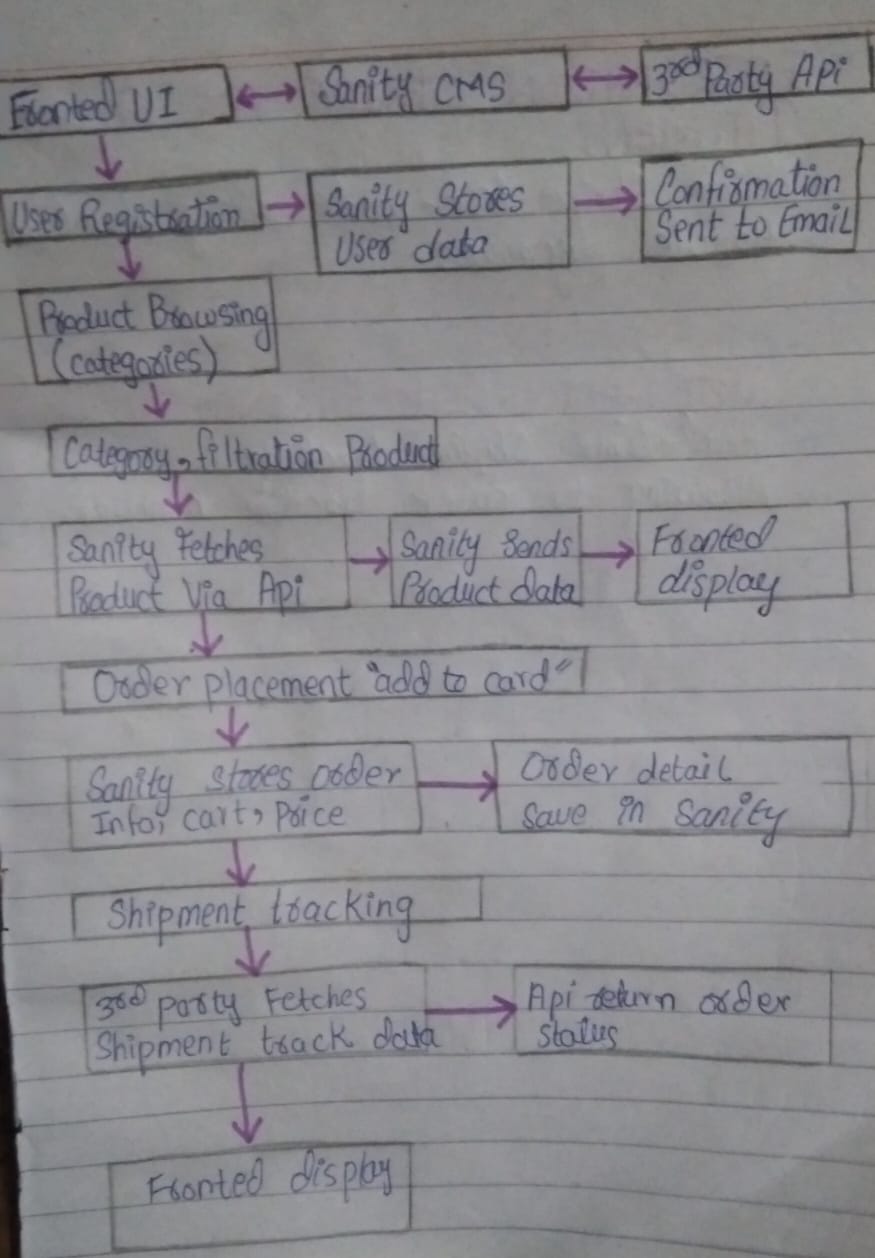 Fronted UI
Sanity CMS
3rd Party Api
User Registration
Sanity Stores
User data
Confirmation
Sent to Email
Product Browsing
(categories)
Category, filtration Product
Sanity Fetches
Product Via Api
Sanity Sends
Product data
Fronted
display
Order placement "add to card"
Sanity stores order
Info, cart, price
Order detail
Save in Sanity
Shipment tracking
3rd party Fetches
Shipment track data
Api return order
status
Fronted display